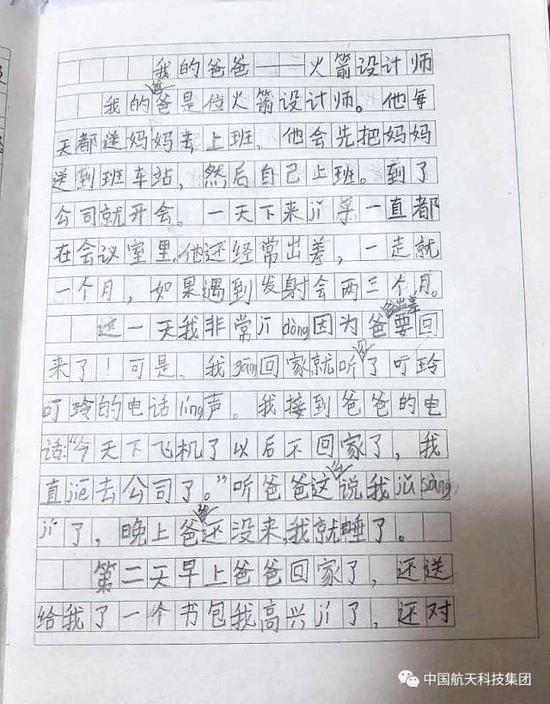 我的爸爸——火箭设计师
我的爸爸是位火箭设计师。他每
天都送妈妈去上班,他会先把妈妈
送到班车站,然后自己上班。到了
公司就开会。一天下来jī采一直都
在会议室里,他还经常出差,一走就
一个月,如果遇到发射会两三个月。
这一天我非常jī dòng因为爸爸出差要回
来了!可是,我gāng回家就听见了叮玲
叮玲的电话líng声。我接到爸爸的电
话:“今天下飞机了以后不回家了,我
直jiē去公司了。”听爸爸这么说我jǔ sàng
jí了,晚上爸爸还没来,我就睡了。
第二天早上爸爸回家了,还送
给我了一个书包我高兴jí了,还对
中国航天科技集团